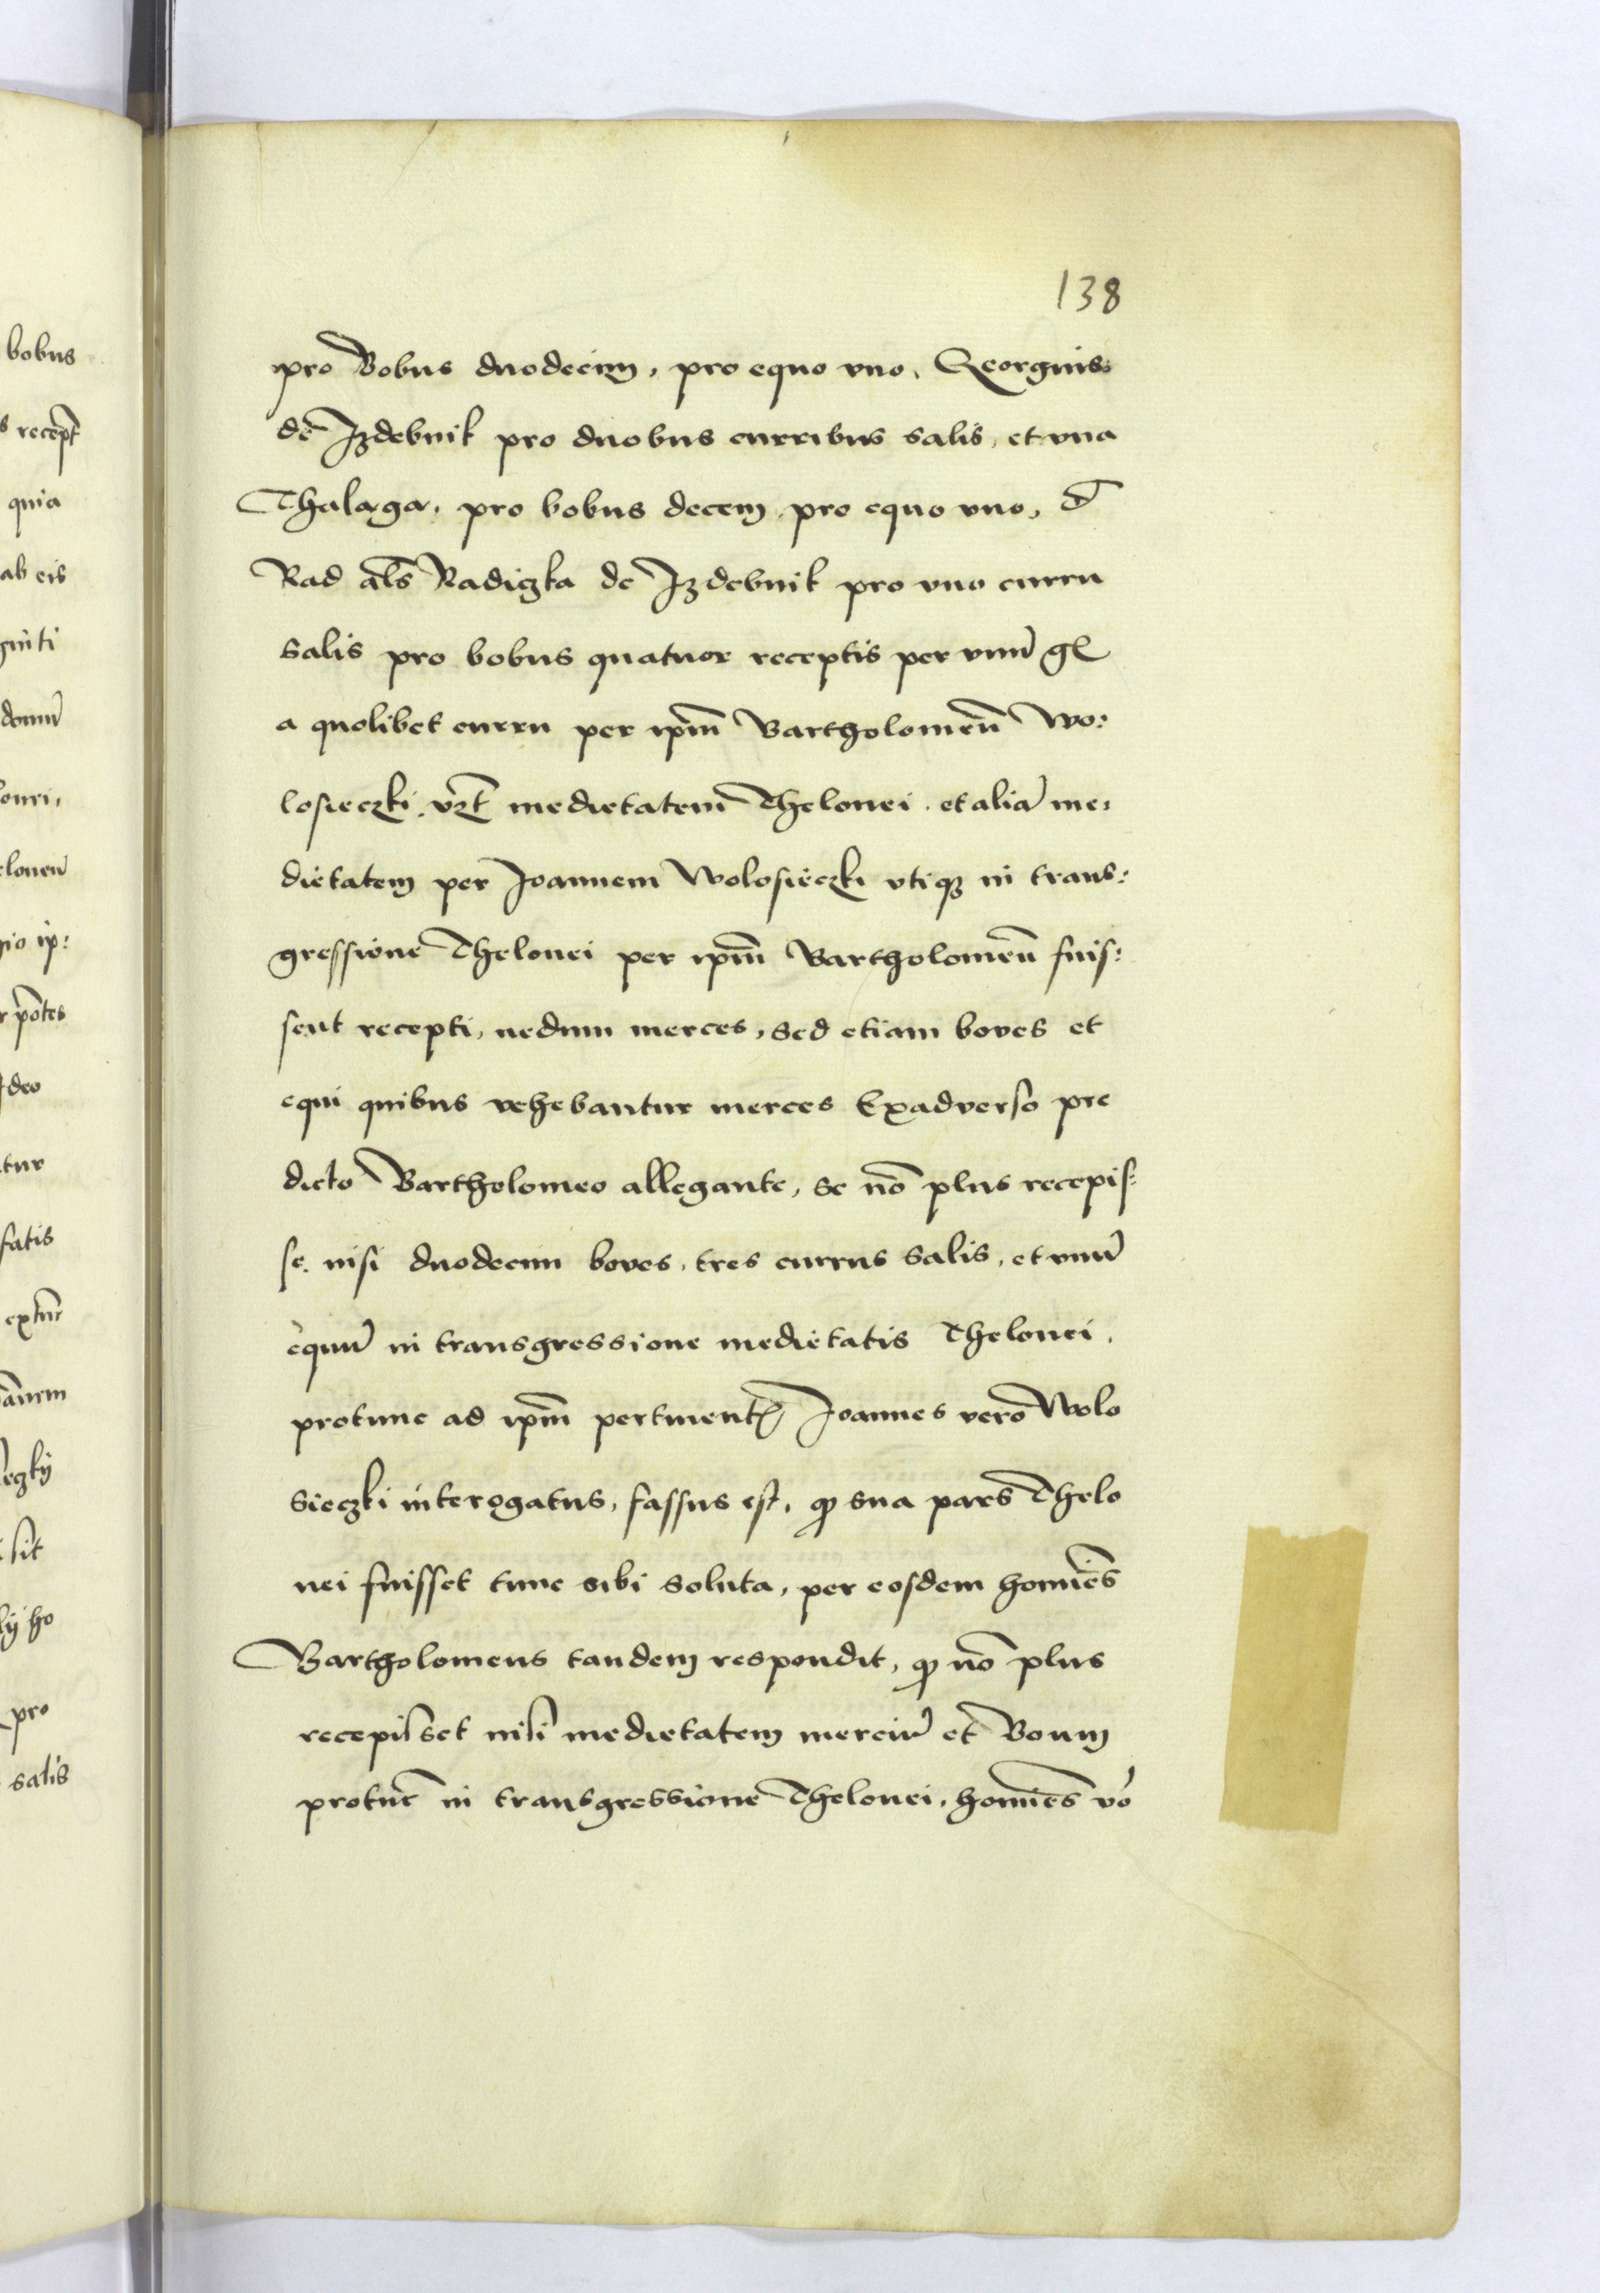 138
pro Bobus duodecim, pro equo vno, Georgius
de Jzdebnik pro duobus curribus salis, et vna
Thalaga, pro bobus decem pro equo vno, d
Rad als Radiczka de Jzdebnik pro vno curru
salis pro bobus quatuor receptis per vnu gl
a quolibet curru per ipm Bartholomeu Wo:
losieczki, vzt medietatem Thelonei et alia me:
dietatem per Joannem Wolosieczki vtiq in trans:
gressione Thelonei per ipm Bartholomeu fuis:
sent recepti, nedum merces, sed etiam boves et
equi quibus vehebantur merces Exadverso pre
dicto Bartholomeo allegante, se no plus recepis:
se, nisi duodecim boves, tres currus salis, et vnu
equu in transgressione medietatis Thelonei,
protunc ad ipm pertinent Joannes vero Wolo
sieczki interogatus, fassus est, q sua pars Thelo
nei fuisset tunc sibi soluta, per eosdem homies
Bartholomeus tandem respondit, q no plus
recepisset nisi medietatem merciu et Boum
protuc in transgressione Thelonei, homies vo
bobus
recept
quia
ab eis
fatis
salis
pro